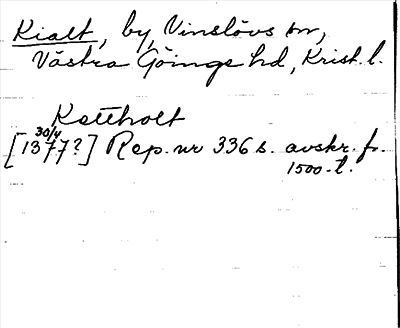 Kialt, by, Vinslövs sn,
Västra Göinge hd, Krist. l.
Kettholt
30/4
[1377?] Rep. nr 336 s. avskr. fr.
1500-t.